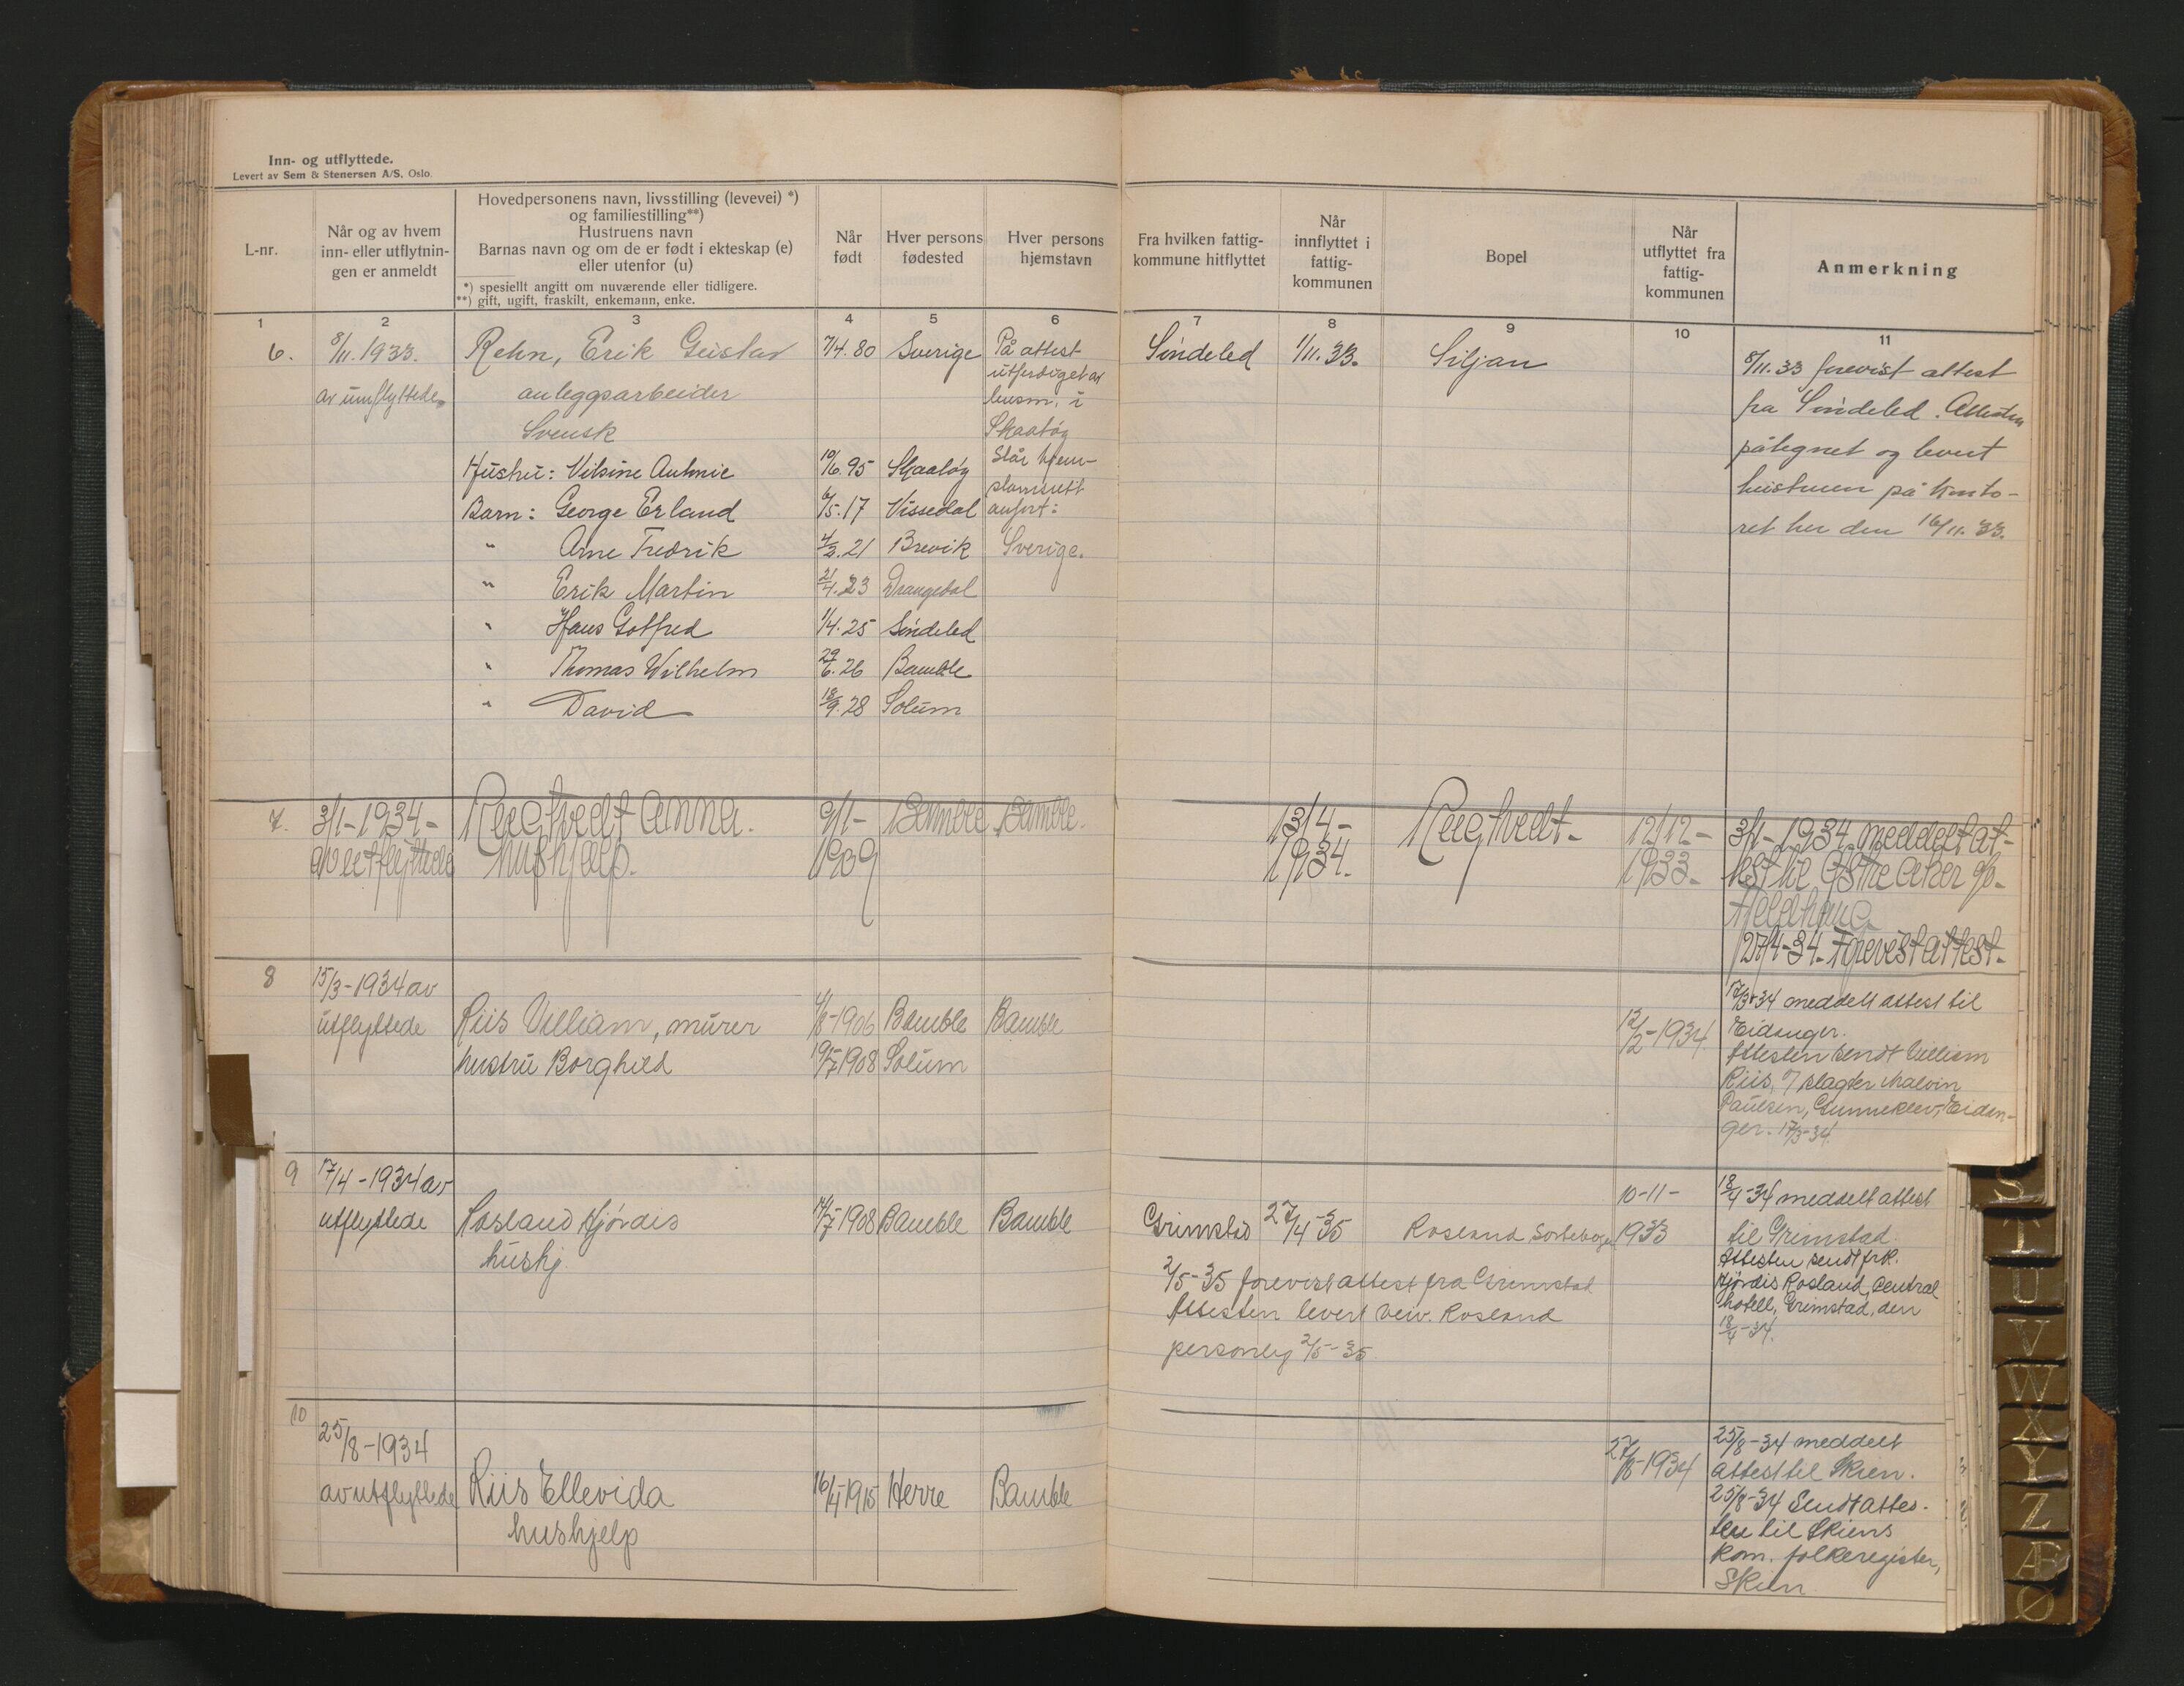 Inn- og utflyttede.
Levert av Sem & Stenersen A/S, Oslo.
L-nr.
Når og av hvem
inn- eller utflytnin-
gen er anmeldt
Hovedpersonens navn, livsstilling (levevei) *)
og familiestilling**)
Hustruens navn
Barnas navn og om de er født i ekteskap (e)
eller utenfor (u)
*) spesiellt angitt om nuværende eller tidligere.
**) gift, ugift, fraskilt, enkemann, enke.
Når
født
Hver persons
fødested
Hver persons
hjemstavn
Fra hvilken fattig-
kommune hitflyttet
Når
innflyttet i
fattig-
kommunen
Bopel
Når
utflyttet fra
fattig-
kommunen
Anmerkning
1 2 3 4 5 6 7 8 9 10 11
6. 8/11.1933. Rehn, Erik Gustav 7/4.80 Sverige På attest Söndeled 1/11.33. Siljan
av innflyttede anleggsarbeider utferdiget av
Svensk lensm. i
Skaatøy
Hustru: Vilsine 10/6.95 Skaatøy Står hjem-
Barn: George Erland 6/5.17 Vissedal anført:
" Arne Fredrik 4/3.21 Brevik Sverige.
" Erik Martin 21/4.23 Drangedal
" Hans Gotfred 1/4.25 Söndeled
" Thomas Wilhelm 29/6.26 Bamble
" David 18/9.28 Solum
8/11.33 forevist attest
fra Söndeled. Attesten
påtegnet og levert
hustruen på konto-
ret her den 16/11.33.
7. 3/1-1934- Rugtvedt Anna. 9/1- Bamble Bamble. 13/4- Rugtvedt- 12/12-
av utflyttede hushjelp. 1909 1934. 1933-
3/1-1934 meddelt at-
test til Østre Aker
27/4-34. Forevist attest-
8 15/3-1934 av
utflyttede Riis Villiam, murer 4/8-1906 Bamble Bamble 12/2-1934
hustru Borghild 19/7-1908 Solum
17/3-34 meddelt attest til
Eidanger.
Attesten sendt Villiam
Riis, c/ slagter Malvin
Paulsen, Gunneklev, Eidan-
ger. 17/3-34.
9 17/4-1934 av
utflyttede Rosland Hjørdis 14/7-1908 Bamble Bamble Grimstad 27/4-35 Rosland, 10-11-
hushj 1933
2/5-35 forevist attest fra Grimstad
Attesten levert Rosland
personlig 2/5-35
18/4-34 meddelt attest
til Grimstad.
Attesten sendt frk.
Hjørdis Rosland, Central
hotell, Grimstad, den
18/4-34.
10
25/8-1934
av utflyttede Riis Ellevida 16/4-1915 Herre Bamble 27/8-1934
hushjelp
25/8-34 meddelt
attest til Skien.
25/8-34 Sendt attes-
ten til Skiens
kom. folkeregister,
Skien
S
T
U
V
W
X
Y
Z
Æ
Ø